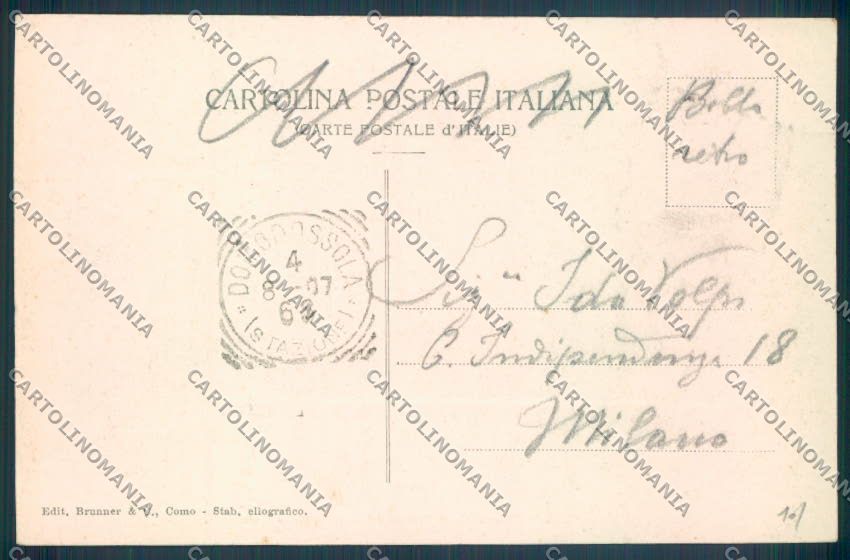 CARTOLINA POSTALE ITALIANA
(CARTE POSTALE d'ITALIE)
Bollo
retro
DOMODOSSOLA
4
8 - 07
6 S
* (STAZIONE) *
Sig" Ido Volpi
C. Indipendenza 18
Milano
Edit. Brunner & C., Como - Stab. eliografico.
CARTOLINOMANIA